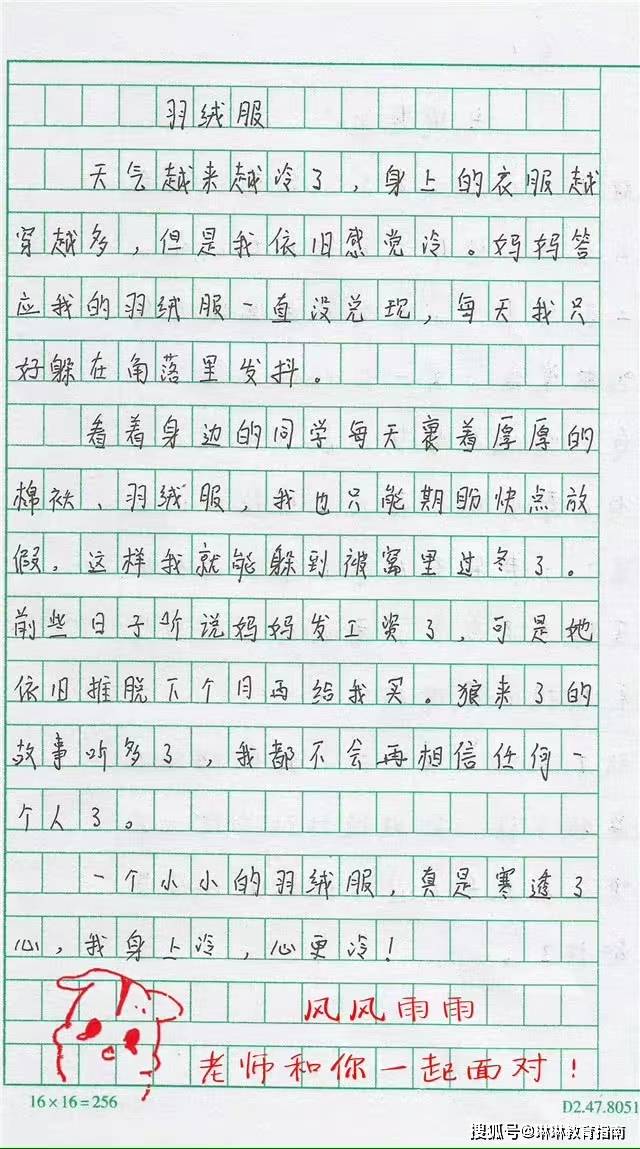 羽绒服
天气越来越冷了，身上的衣服越
穿越多，但是我依旧感觉冷。妈妈答
应我的羽绒服一直没兑现，每天我只
好躲在角落里发抖。
看着身边的同学每天裹着厚厚的
棉袄、羽绒服，我也只能期盼快点放
假，这样我就能躲到被窝里过冬了。
前些日子听说妈妈发工资了，可是她
依旧推脱下个月再给我买。狼来了的
故事听多了，我都不会再相信任何一
个人了。
一个小小的羽绒服，真是寒透了
心，我身上冷，心更冷！
风风雨雨
老师和你一起面对！
16×16=256
D2.47.8051
搜狐号@琳琳教育指南